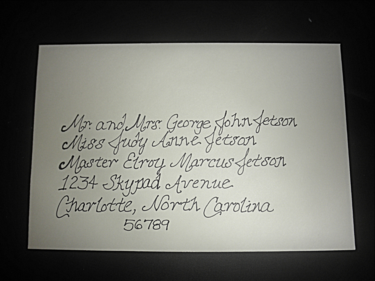 Mr. and Mrs. George John Jetson
Miss Judy Anne Jetson
Master Elroy Marcus Jetson
1234 Skypad Avenue
Charlotte, North Carolina
56789